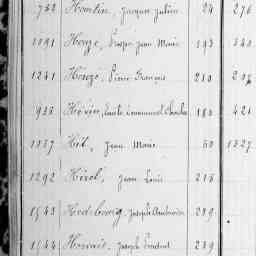 752 Houlin, Jacques Julien 24 276
1091 Houze, Prosper Jean Marie 193 340
1241 Hénzé, Pierre François 210 206
935 Emile Emmanuel Charles 180 421
1157 Hit, Jean Marie 50 1327
1292 Hirel, Jean Louis 218
1543 Joseph Ambroise 239
1544 Hervais, Joseph 239